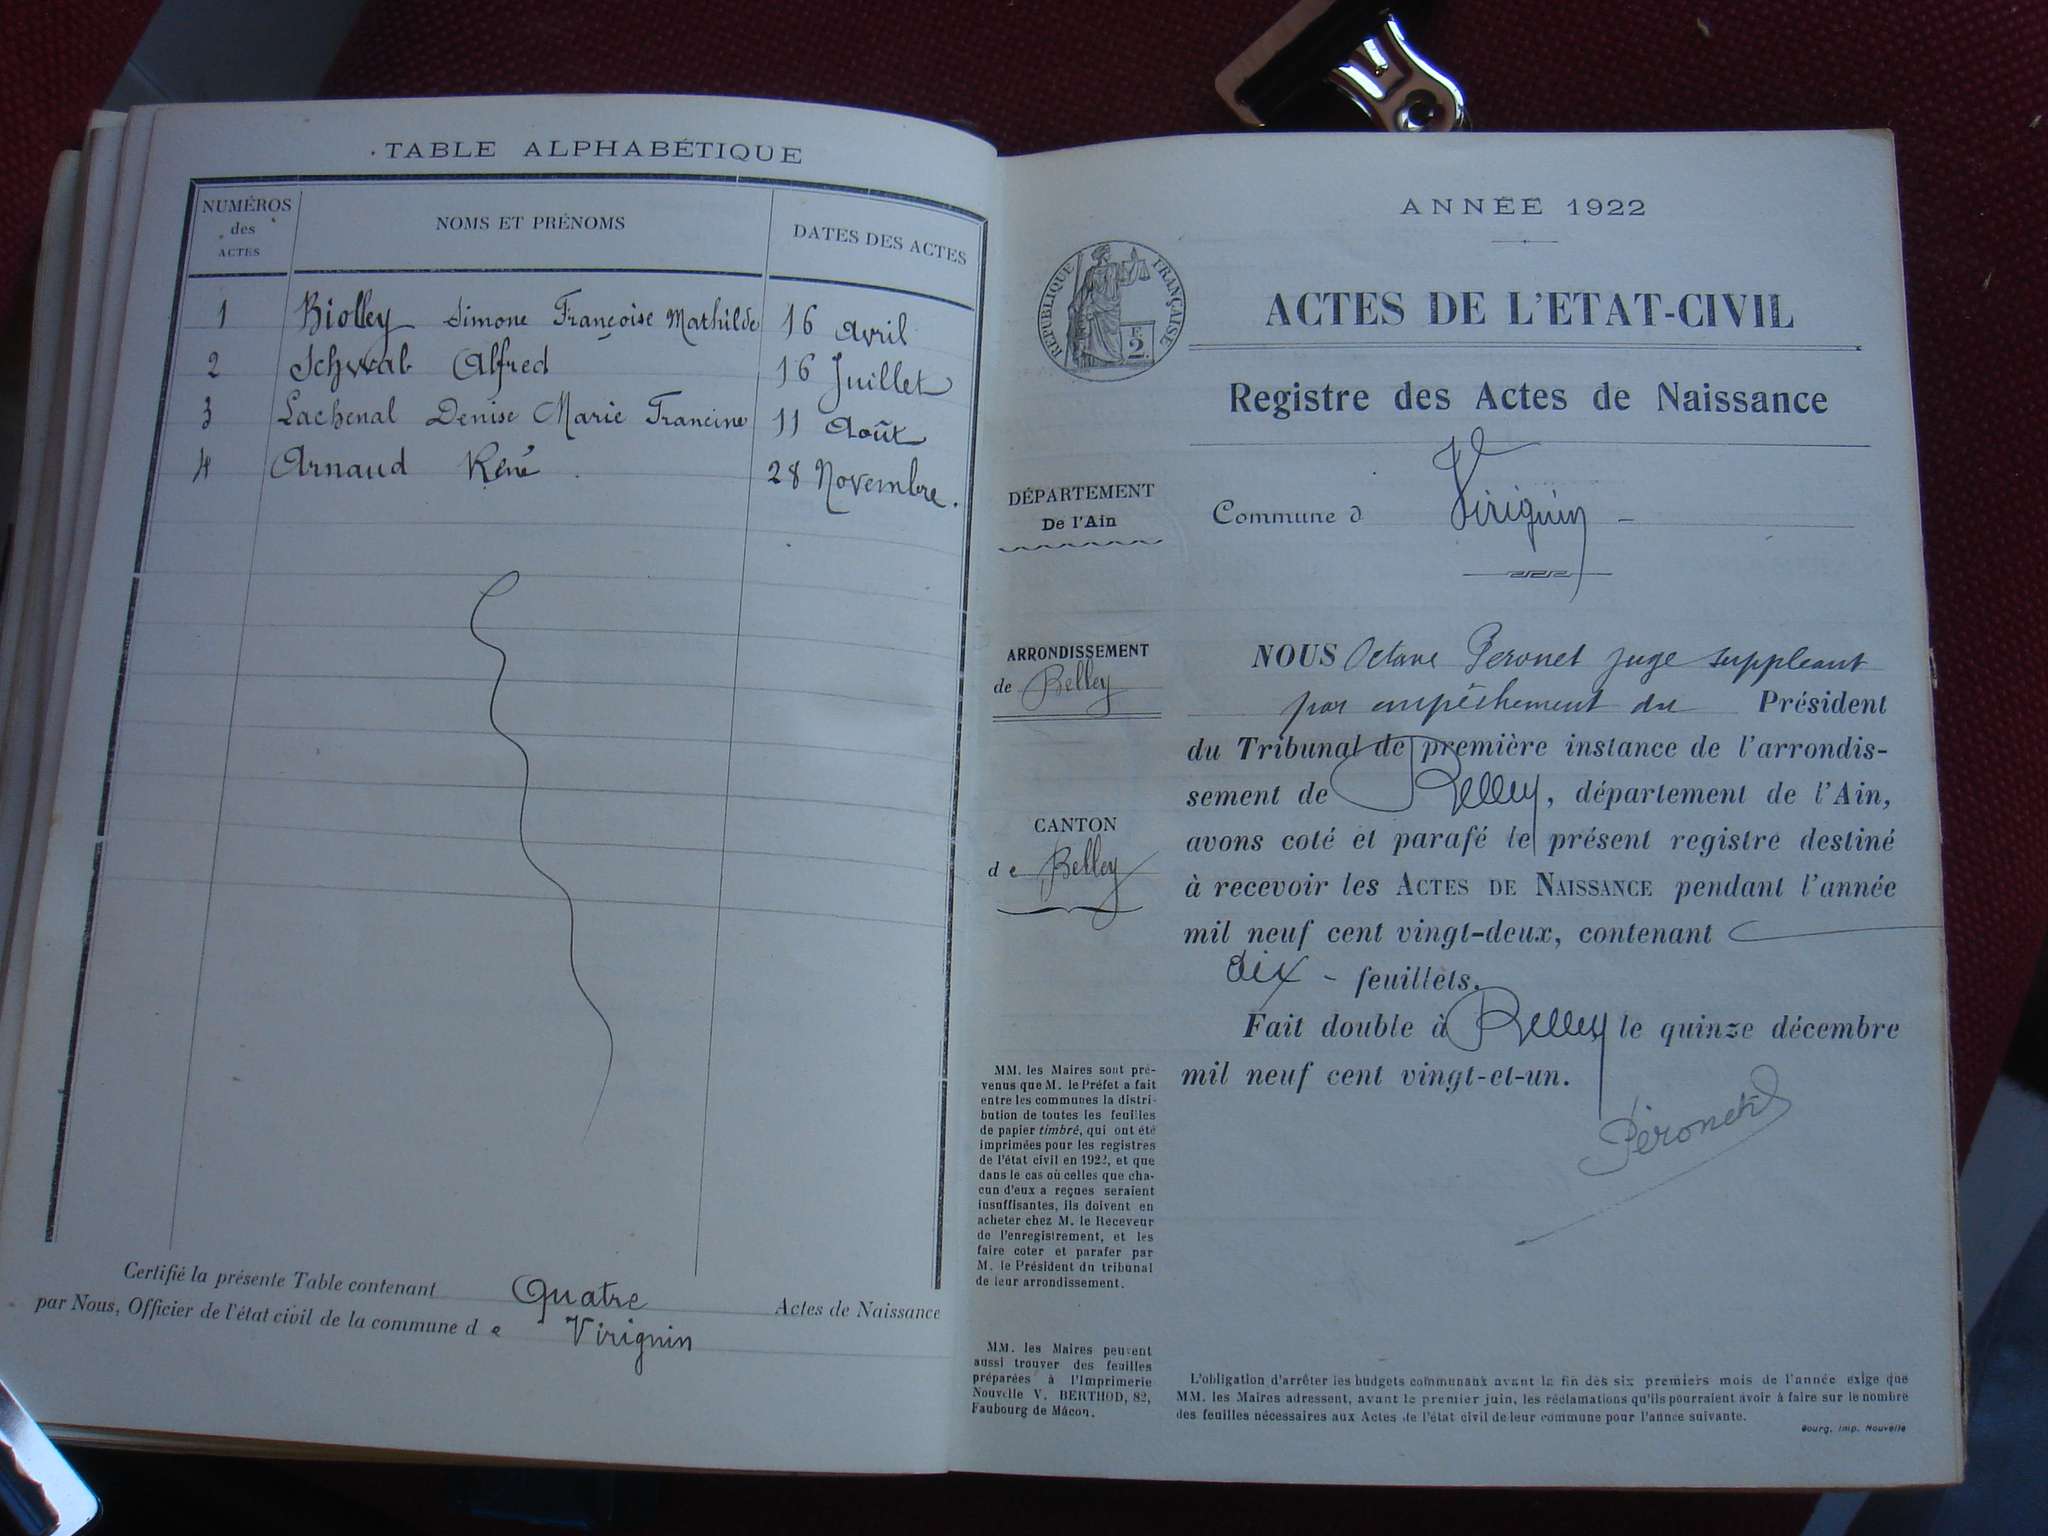 TABLE ALPHABÉTIQUE
NUMÉROS des ACTES
NOMS ET PRÉNOMS
DATES DES ACTES
1 Biolley Simone Françoise Mathilde 16 Avril
2 Schwab Alfred 16 Juillet
3 Lachenal Denise Marie Francine 11 Août
4 Arnaud René 28 Novembre.
Certifié la présente Table contenant Quatre Actes de Naissance
par Nous, Officier de l'état civil de la commune de Virignin
ANNÉE 1922
RÉPUBLIQUE FRANÇAISE
2 F.
ACTES DE L'ETAT-CIVIL
Registre des Actes de Naissance
DÉPARTEMENT
De l'Ain
Commune d Virignin
ARRONDISSEMENT
de Belley
CANTON
de Belley
NOUS Octave Peronet juge suppleant
par empêchement du Président
du Tribunal de première instance de l'arrondis-
sement de Belley, département de l'Ain,
avons coté et parafé le présent registre destiné
à recevoir les ACTES DE NAISSANCE pendant l'année
mil neuf cent vingt-deux, contenant
dix - feuillets.
Fait double à Belley le quinze décembre
mil neuf cent vingt-et-un.
Péronet
MM. les Maires sont pré-
venus que M. le Préfet a fait
entre les communes la distri-
bution de toutes les feuilles
de papier timbré, qui ont été
imprimées pour les registres
de l'état civil en 1922, et que
dans le cas où celles que cha-
cun d'eux a reçues seraient
insuffisantes, ils doivent en
acheter chez M. le Receveur
de l'enregistrement, et les
faire coter et parafer par
M. le Président du tribunal
de leur arrondissement.
MM. les Maires peuvent
aussi trouver des feuilles
préparées à l'Imprimerie
Nouvelle V. BERTHOD, 82,
Faubourg de Mâcon.
L'obligation d'arrêter les budgets communaux avant la fin des six premiers mois de l'année exige que
MM. les Maires adressent, avant le premier juin, les réclamations qu'ils pourraient avoir à faire sur le nombre
des feuilles nécessaires aux Actes de l'état civil de leur commune pour l'année suivante.
Bourg. Imp. Nouvelle